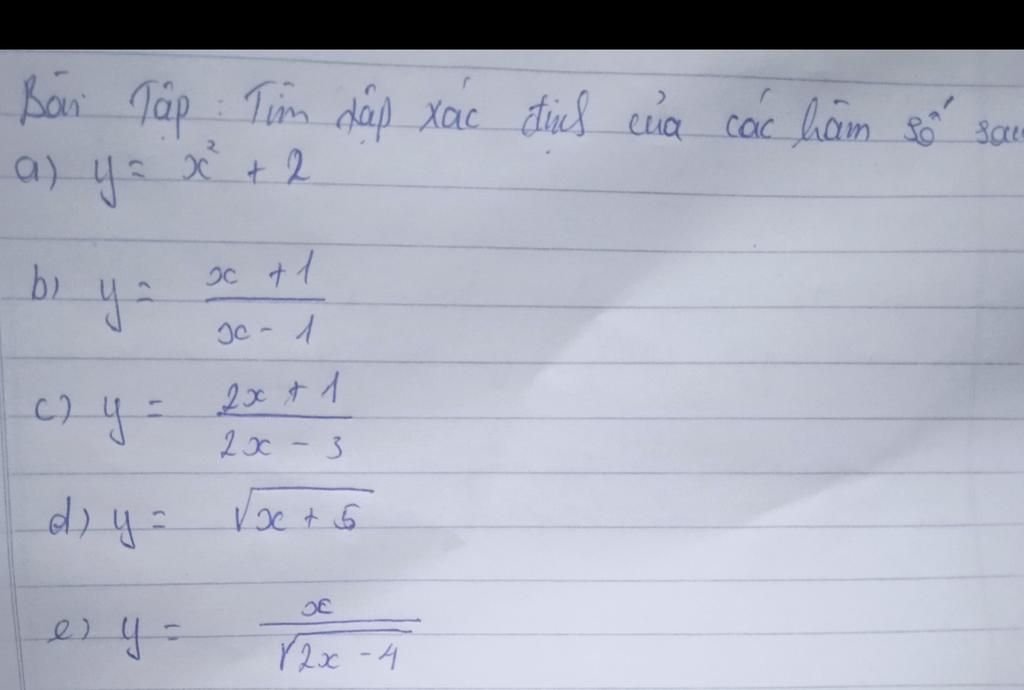 Bài Tập : Tìm tập xác định của các hàm số sau
a) y = x² + 2
b) y = \frac{x + 1}{x - 1}
c) y = \frac{2x + 1}{2x - 3}
d) y = \sqrt{x + 5}
e) y = \frac{x}{\sqrt{2x - 4}}